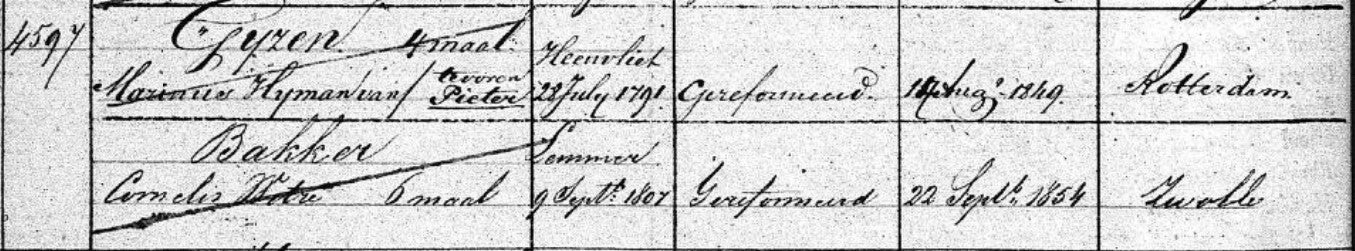 4597
Gyzen 4 maal
Heenvliet
Marinus Hyman van / tevoren Pieter 28 July 1791 Gereformeerd. Augs. 1849. Rotterdam
Bakker Lemmer
Cornelis 6 maal 9 Septr. 1807 Gereformeerd 22 Septr. 1854 Zwolle